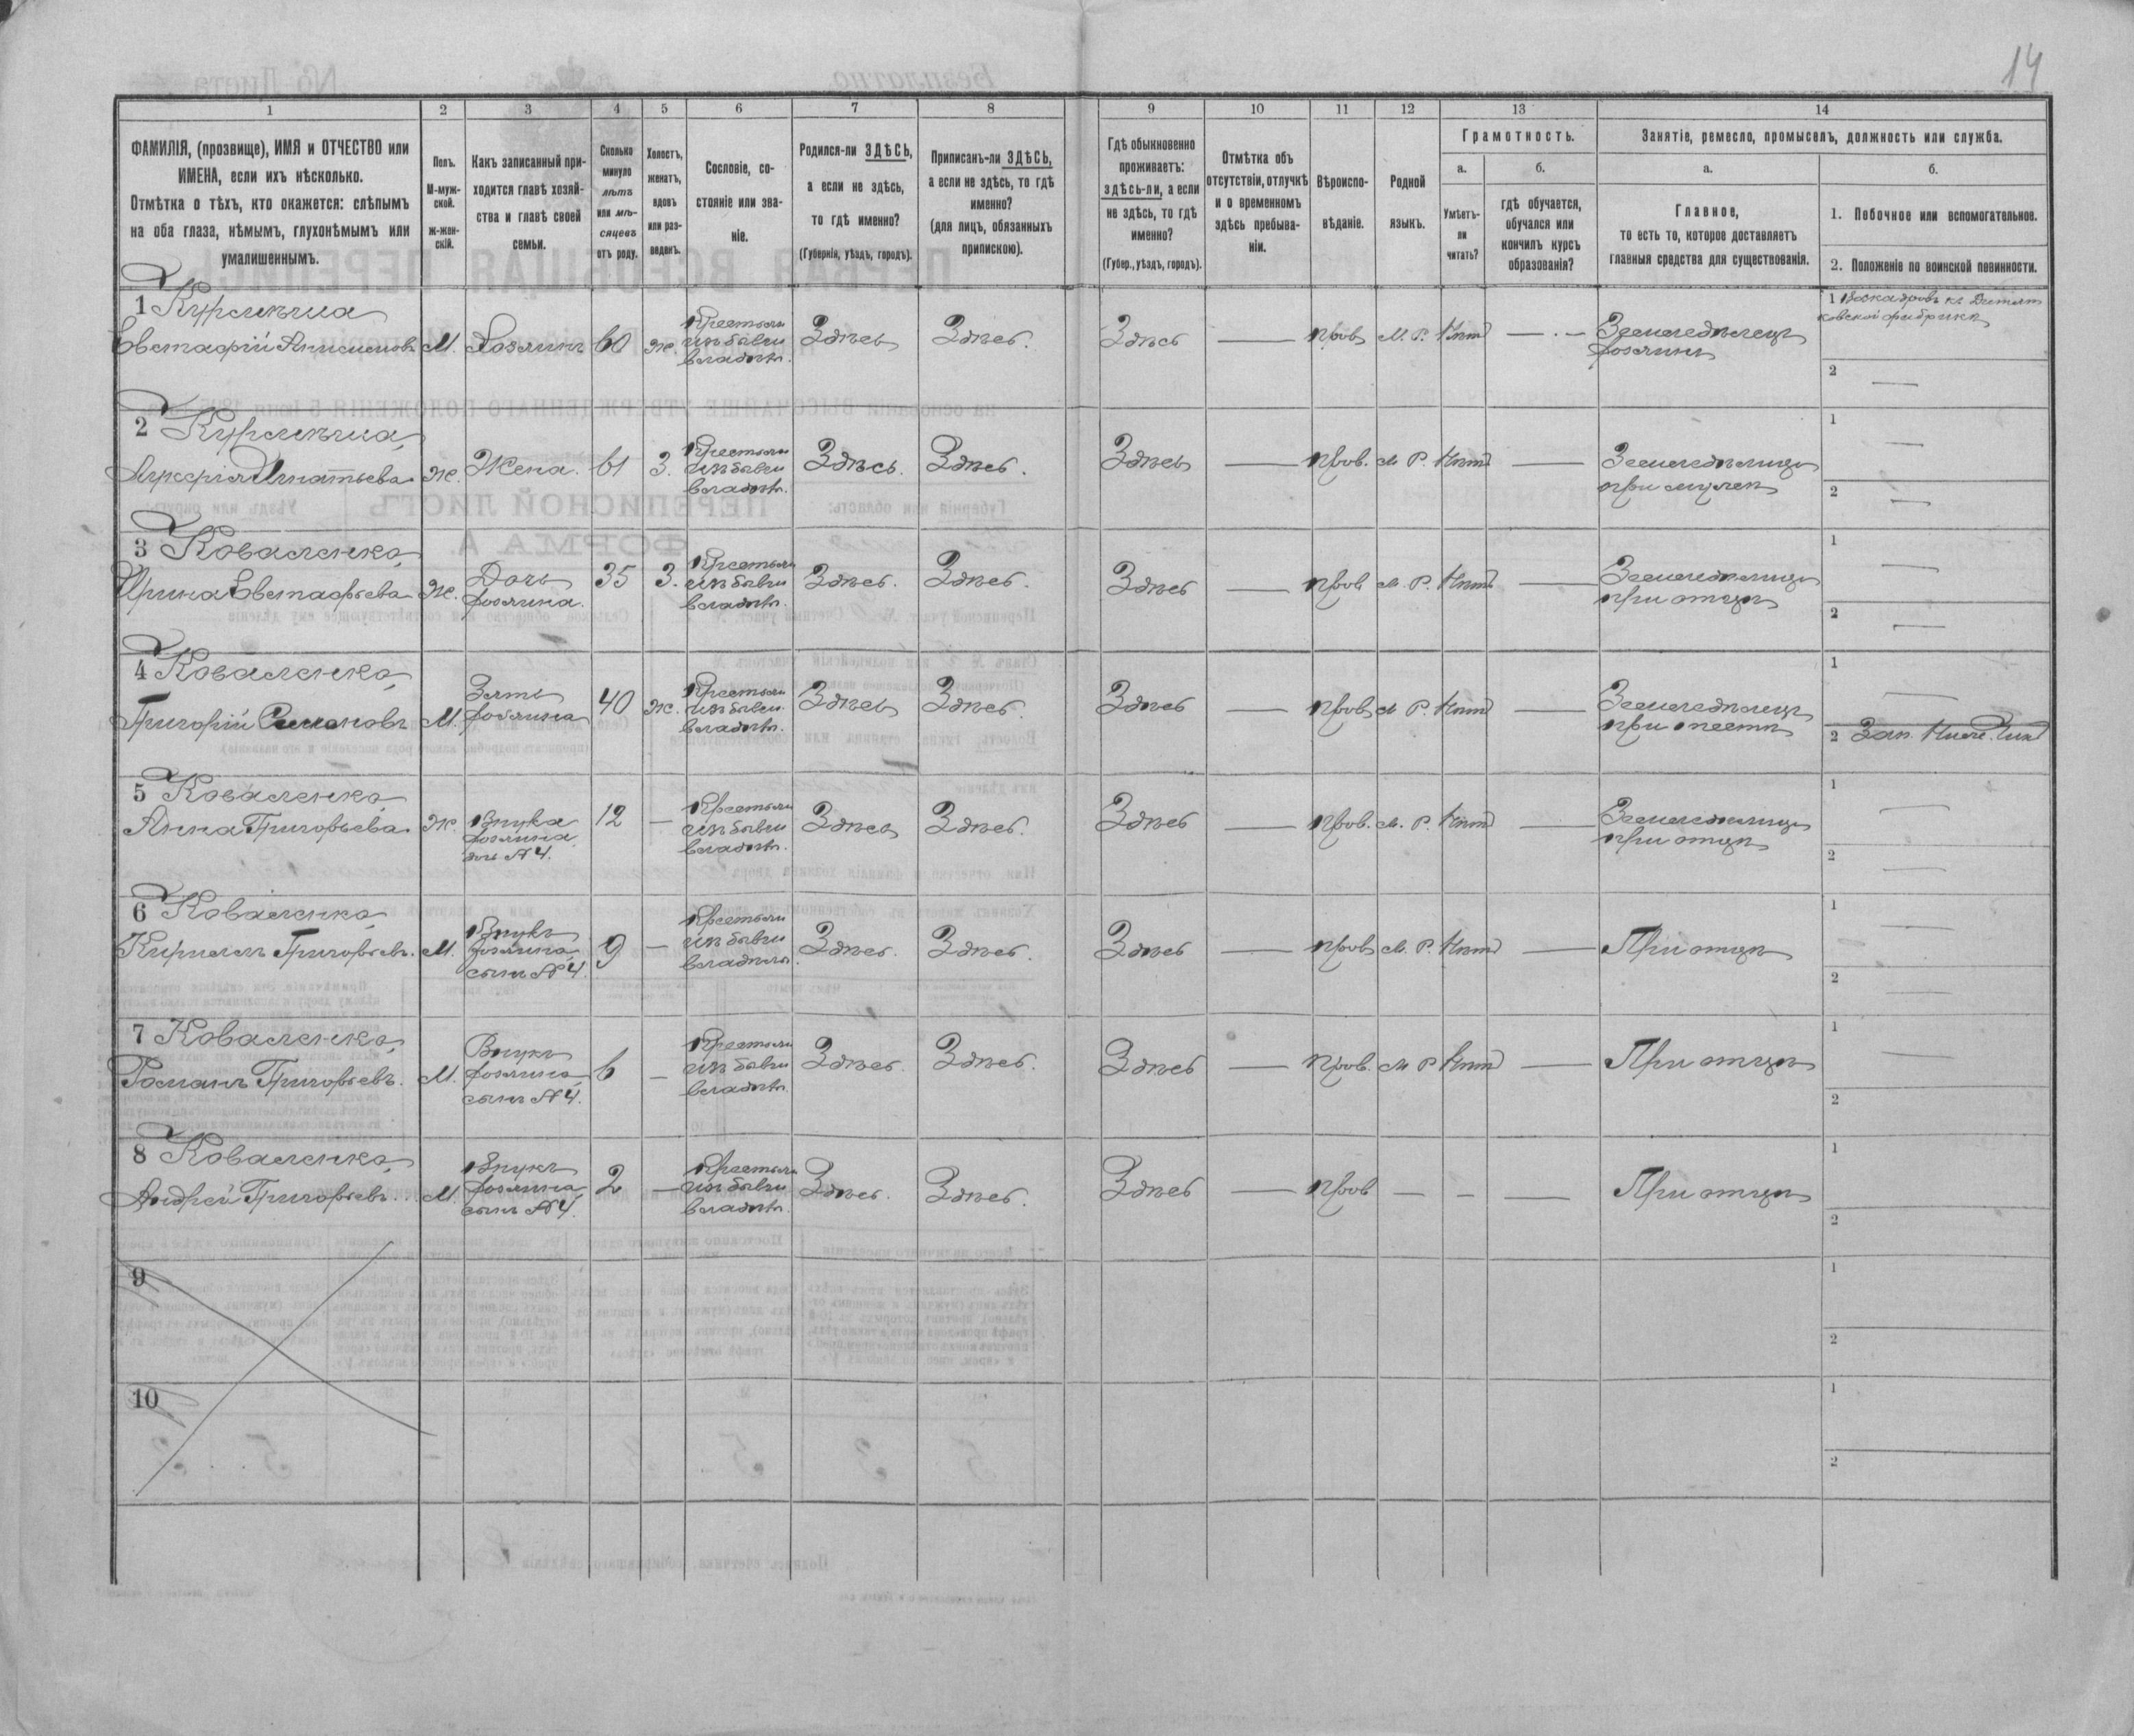 14
1 2 3 4 5 6 7 8 9 10 11 12 13 14
ФАМИЛІЯ, (прозвище), ИМЯ и ОТЧЕСТВО или
ИМЕНА, если ихъ нѣсколько.
Отмѣтка о тѣхъ, кто окажется: слѣпымъ
на оба глаза, нѣмымъ, глухонѣмымъ или
умалишеннымъ.
Полъ.
М-муж-
ской.
ж-жен-
скій.
Какъ записанный при-
ходится главѣ хозяй-
ства и главѣ своей
семьи.
Сколько
минуло
лѣтъ
или мѣ-
сяцевъ
отъ роду.
Холостъ,
женатъ,
вдовъ
или раз-
веденъ.
Сословіе, со-
стояніе или зва-
ніе.
Родился-ли ЗДѢСЬ,
а если не здѣсь,
то гдѣ именно?
(Губернія, уѣздъ, городъ).
Приписанъ-ли ЗДѢСЬ,
а если не здѣсь, то гдѣ
именно?
(для лицъ, обязанныхъ
припискою).
Гдѣ обыкновенно
проживаетъ:
здѣсь-ли, а если
не здѣсь, то гдѣ
именно?
(Губер., уѣздъ, городъ).
Отмѣтка объ
отсутствіи, отлучкѣ
и о временномъ
здѣсь пребыва-
ніи.
Вѣроиспо-
вѣданіе.
Родной
языкъ.
Грамотность.
а.
Умѣетъ-
ли
читать?
б.
гдѣ обучается,
обучался или
кончилъ курсъ
образованія?
Занятіе, ремесло, промыселъ, должность или служба.
а.
Главное,
то есть то, которое доставляетъ
главныя средства для существованія.
б.
1. Побочное или вспомогательное.
2. Положеніе по воинской повинности.
1
Евстафій М. Хозяинъ 60 ж. Крестьян изъ бывш владѣл. Здѣсь Здѣсь. Здѣсь — прав М. Р. Нѣтъ — Земледѣлецъ хозяинъ
1 фабрикѣ
2 —
2
Игнатьева ж. Жена. 61 З. Крестьян изъ бывш владѣл. Здѣсь. Здѣсь. Здѣсь — прав. М. Р. Нѣтъ — Земледѣлица при мужѣ
1 —
2 —
3 Коваленко
Ирина Евстафьева ж. Дочь хозяина. 35 З. Крестьян изъ бывш владѣл. Здѣсь. Здѣсь. Здѣсь — прав М. Р. Нѣтъ — Земледѣлица при отцѣ
1 —
2 —
4 Коваленко
Григорій М. Зять хозяина 40 ж. Крестьян изъ бывш владѣл. Здѣсь Здѣсь. Здѣсь — прав М. Р. Нѣтъ — Земледѣлецъ при тестѣ
1 —
2 Зап.
5 Коваленко
Анна Григорьева ж. Внука хозяина дочь №4. 12 — Крестьян изъ бывш владѣл. Здѣсь Здѣсь. Здѣсь — прав. М. Р. Нѣтъ — Земледѣлица при отцѣ
1 —
2 —
6 Коваленко
Кирилъ Григорьевъ. М. Внукъ хозяина сынъ №4. 9 — Крестьян изъ бывш владѣл. Здѣсь. Здѣсь. Здѣсь — прав М. Р. Нѣтъ — При отцѣ
1 —
2 —
7 Коваленко
Романъ Григорьевъ. М. Внукъ хозяина сынъ №4. 6 — Крестьян изъ бывш владѣл. Здѣсь. Здѣсь. Здѣсь — прав. М Р Нѣтъ — При отцѣ
1
2
8 Коваленко
Андрей Григорьевъ М. Внукъ хозяина сынъ №4. 2 — Крестьян изъ бывш владѣл. Здѣсь. Здѣсь. Здѣсь — прав — — — При отцѣ
1
2
9
1
2
10
1
2